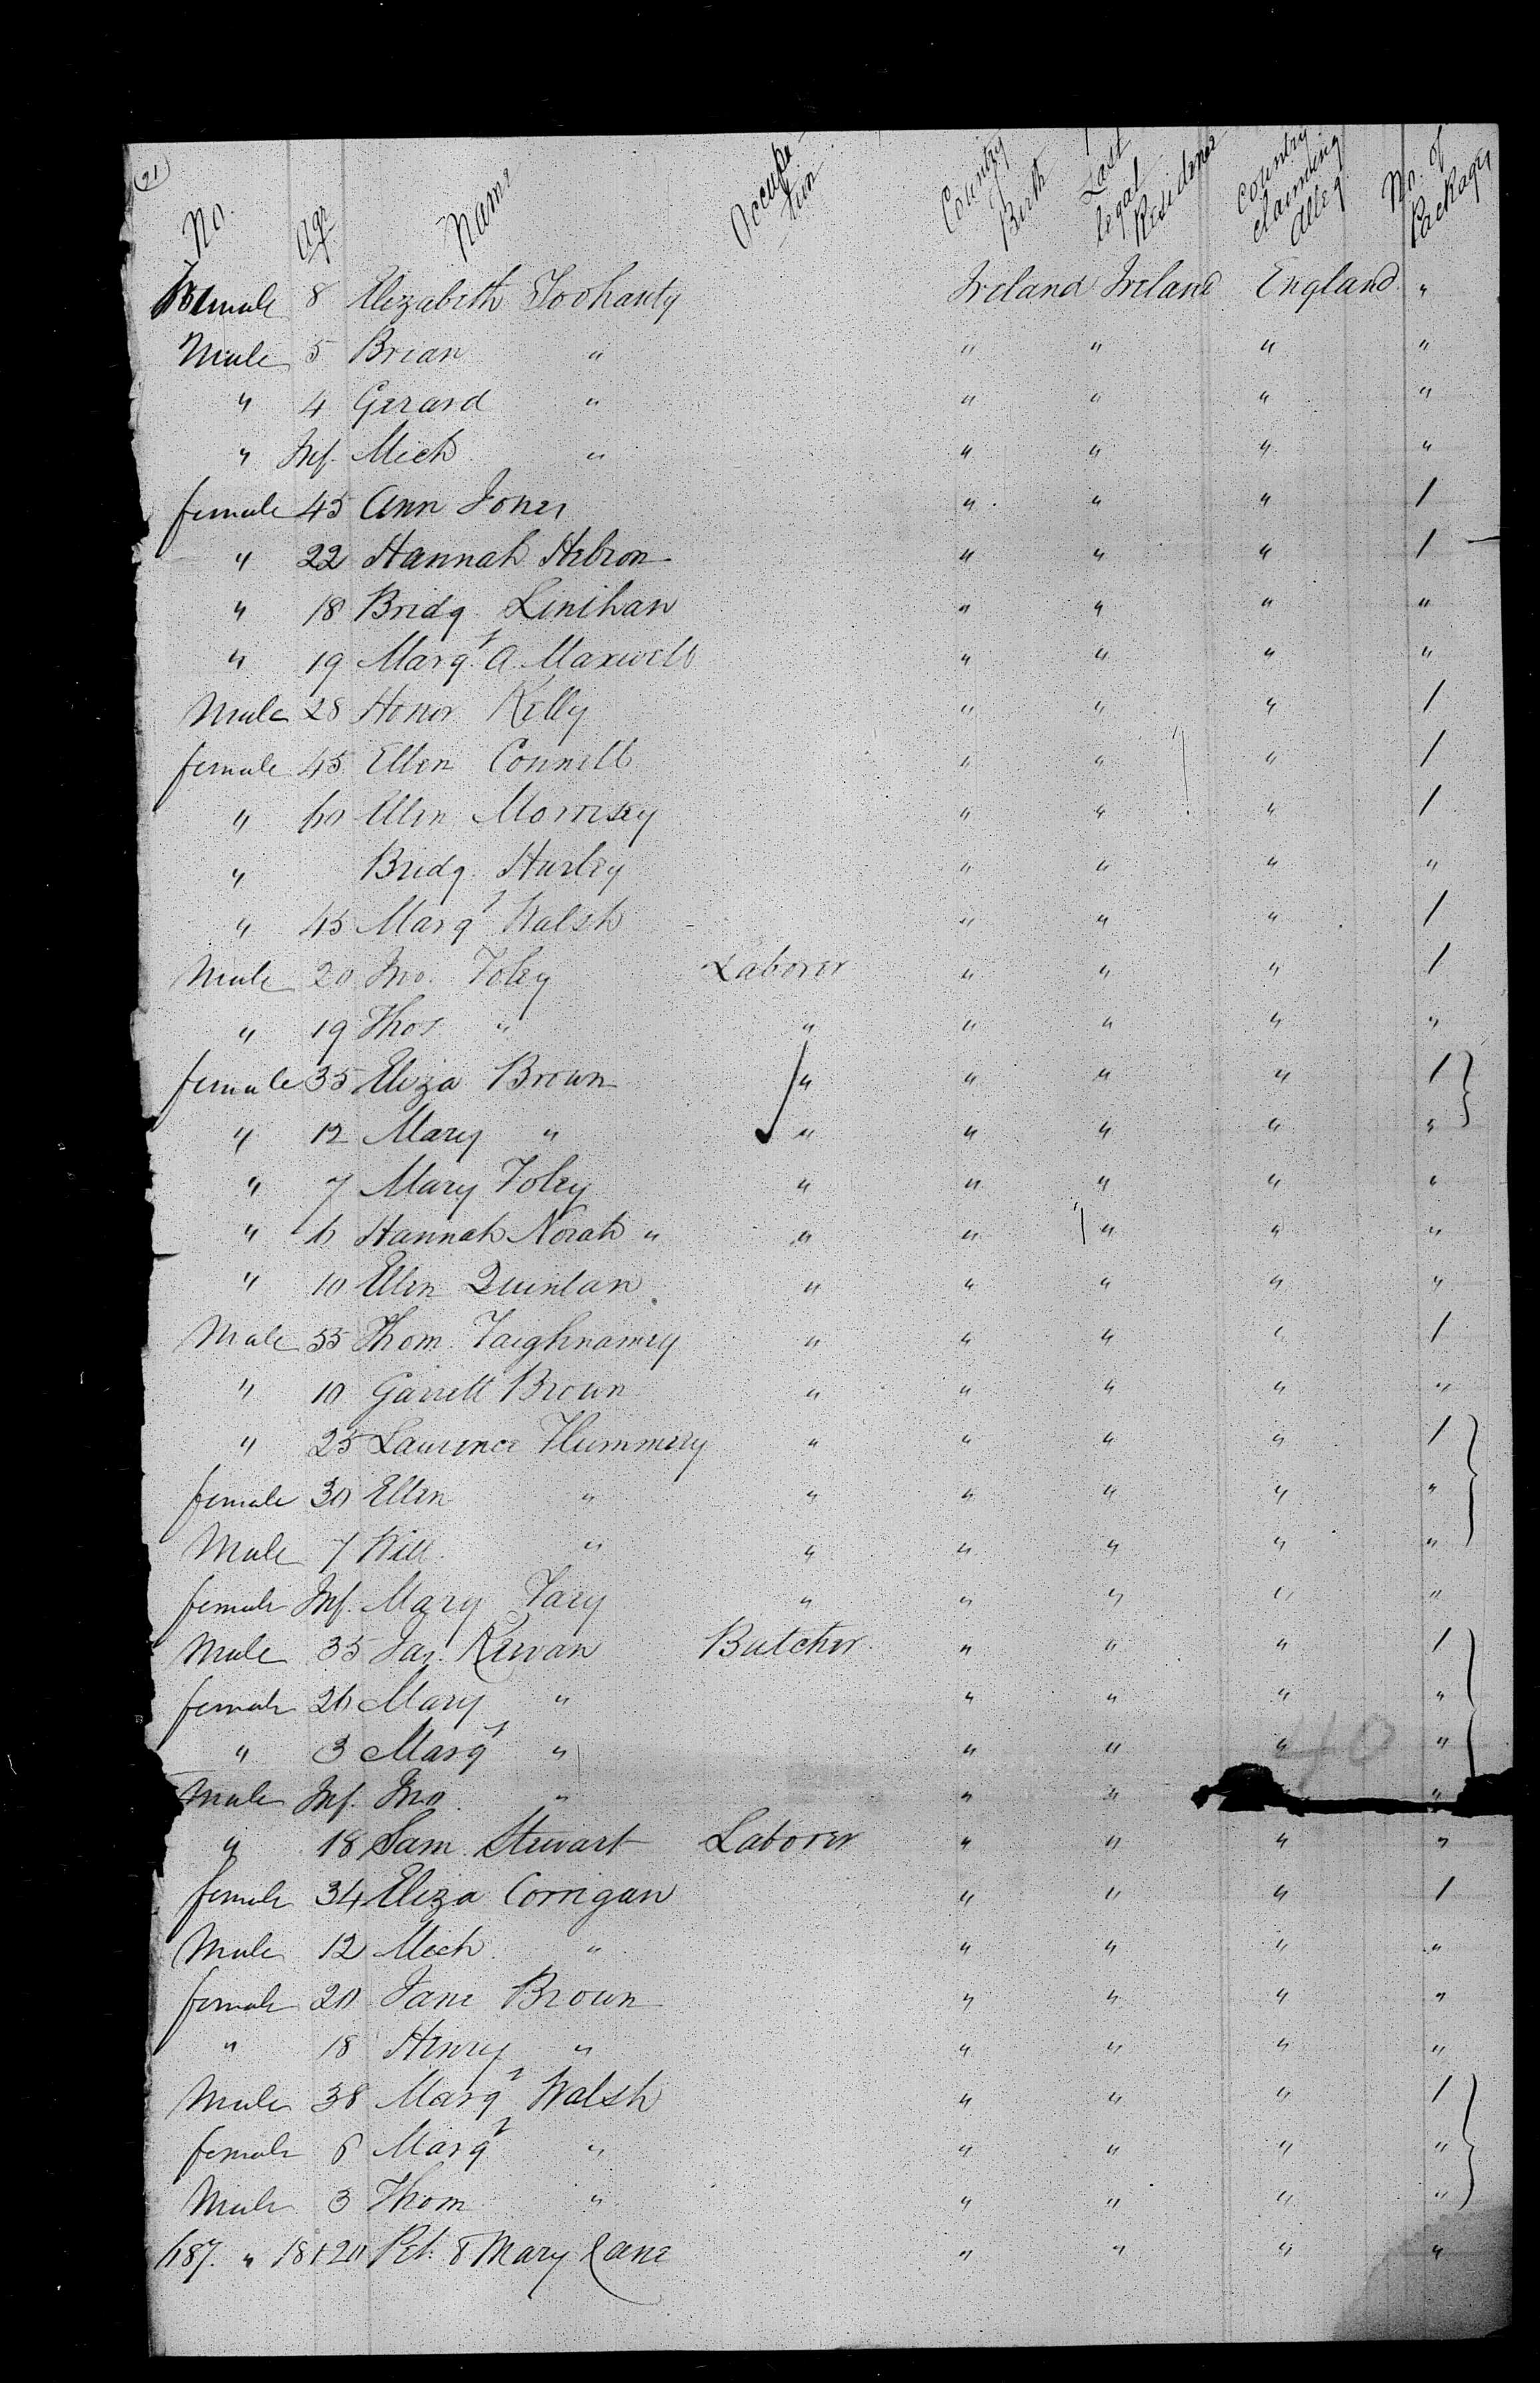 21
No. Age Name Occupation Country Birth Last legal Residence Country claiming Alleg. No. of Packages
Female 8 Elizabeth Ireland Ireland England "
Male 5 Brian " " " " "
" 4 Gerard " " " " "
" Inf. Mich " " " " "
female 45 Ann Jones " " " 1
" 22 Hannah Hebron " " " 1
" 18 Bridg. Linihan " " " "
" 19 Margt. A. Maxwell " " " "
Male 28 Honor Kelly " " " 1
female 45 Ellen Connell " " " 1
" 60 Ellen Morrisey " " " 1
" Bridg. Hurley " " " "
" 45 Margt Walsh " " " 1
Male 20 Jno. Foley Laborer " " " 1
" 19 Thos " " " " " "
female 35 Eliza Brown " " " " 1
" 12 Mary " " " " " "
" 7 Mary Foley " " " " "
" 6 Hannah Norah " " " " " "
" 10 Ellen Quinlan " " " " "
Male 55 Thom. " " " " 1
" 10 Garrett Brown " " " " "
" 25 Laurence Flummery " " " " 1
female 30 Ellen " " " " " "
Male 7 Will " " " " " "
female Inf. Mary " " " " "
Male 35 Jas. Kirwan Butcher " " " 1
female 26 Mary " " " " "
" 3 Margt " " " " "
40
Male Inf. Jno. " " " " "
" 18 Sam. Stewart Laborer " " " "
female 34 Eliza Corrigan " " " 1
Male 12 Mich. " " " " "
female 20 Jane Brown " " " "
" 18 Henry " " " " "
Male 38 Margt Walsh " " " 1
female 6 Margt " " " " "
Male 3 Thom " " " " "
687. " 18+20 Pet. & Mary Lane " " " "